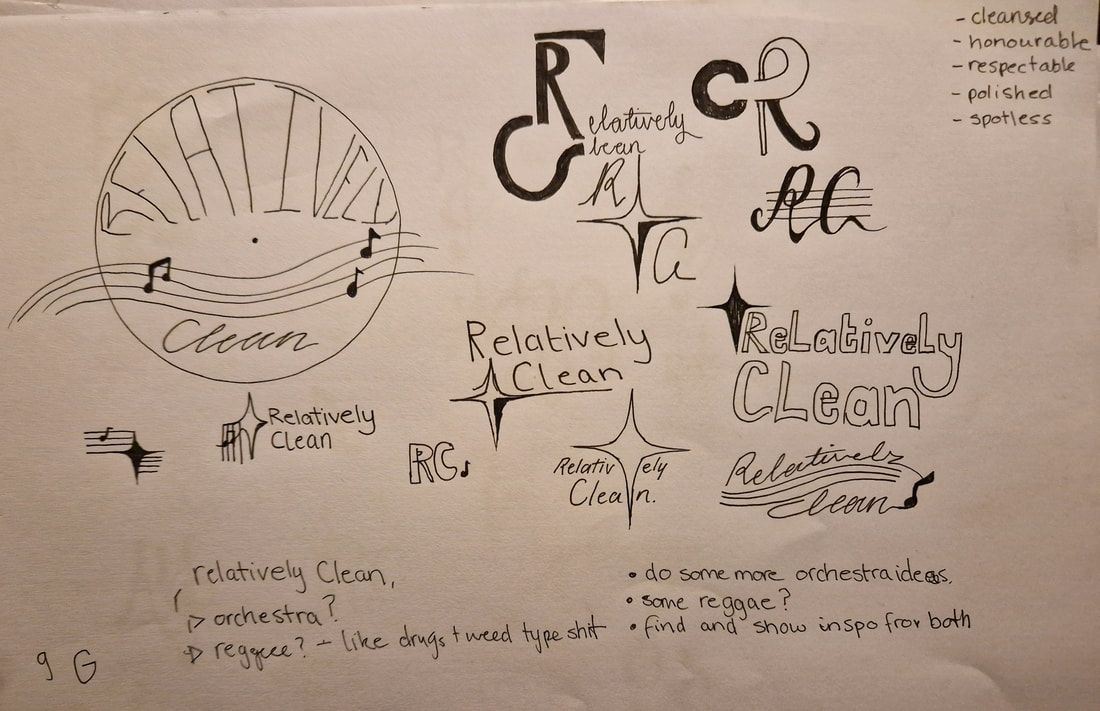 - cleansed
- honourable
- respectable
- polished
- spotless
RELATIVELY
Clean
Relatively
lean
CR
R
C
RC
Relatively
Clean
ReLatively
CLean
Relatively
Clean
RC
Relatively
Clean.
Relatively
Clean
relatively Clean,
orchestra?
reggee? - like drugs + weed type shit
• do some more orchestra ideas.
• some reggae?
• find and show inspo for both
g G